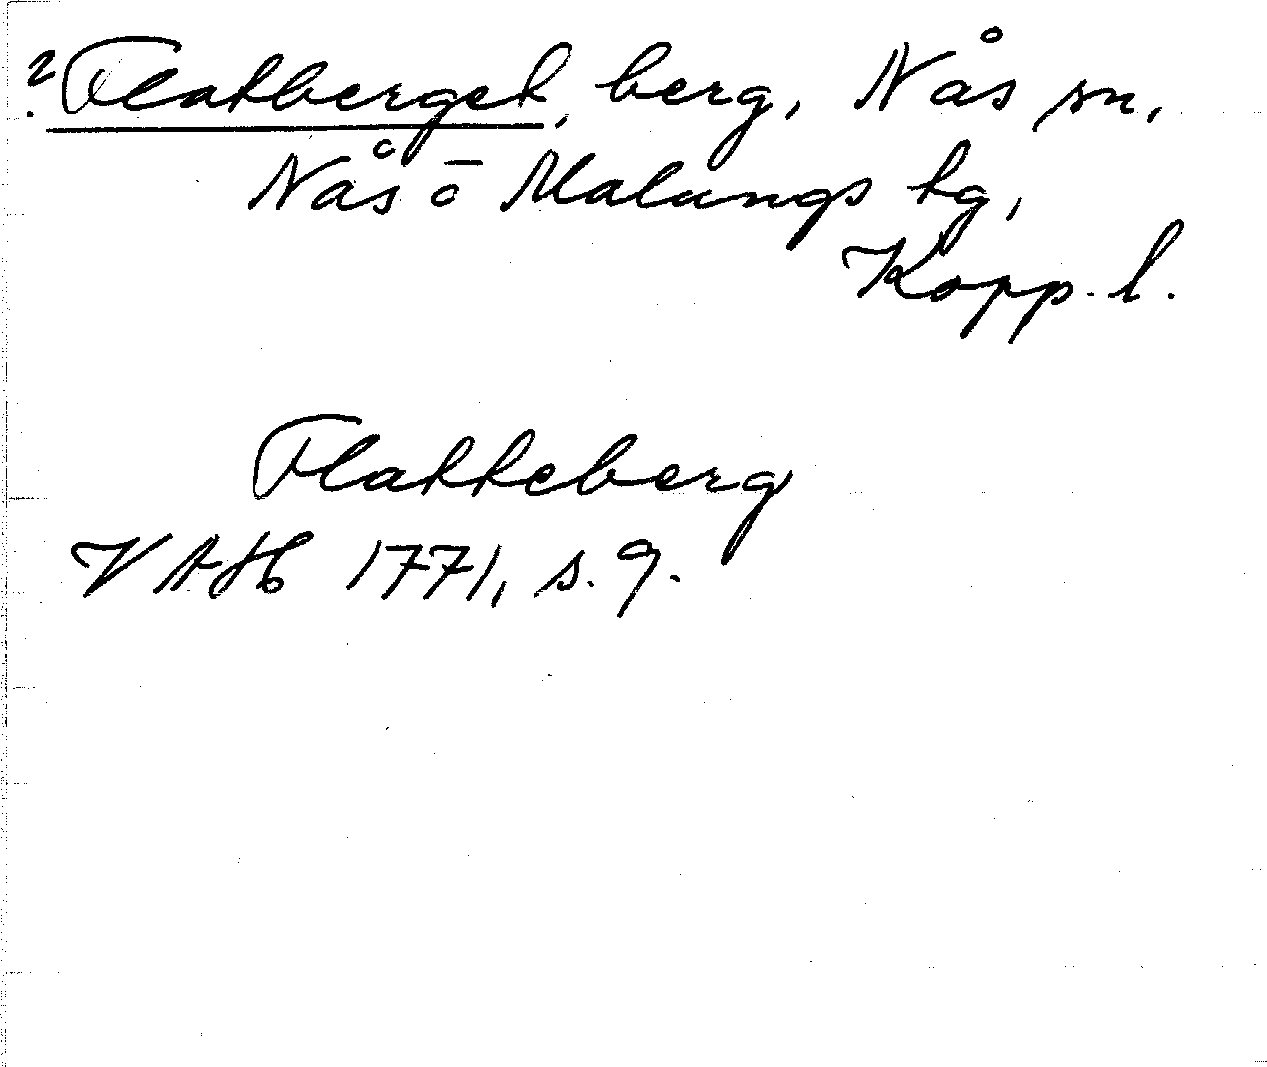 ? Flatberget, berg, Nås sn,
Nås o Malungs tg,
Kopp. l.
Flatteberg
VAH 1771, s. 9.